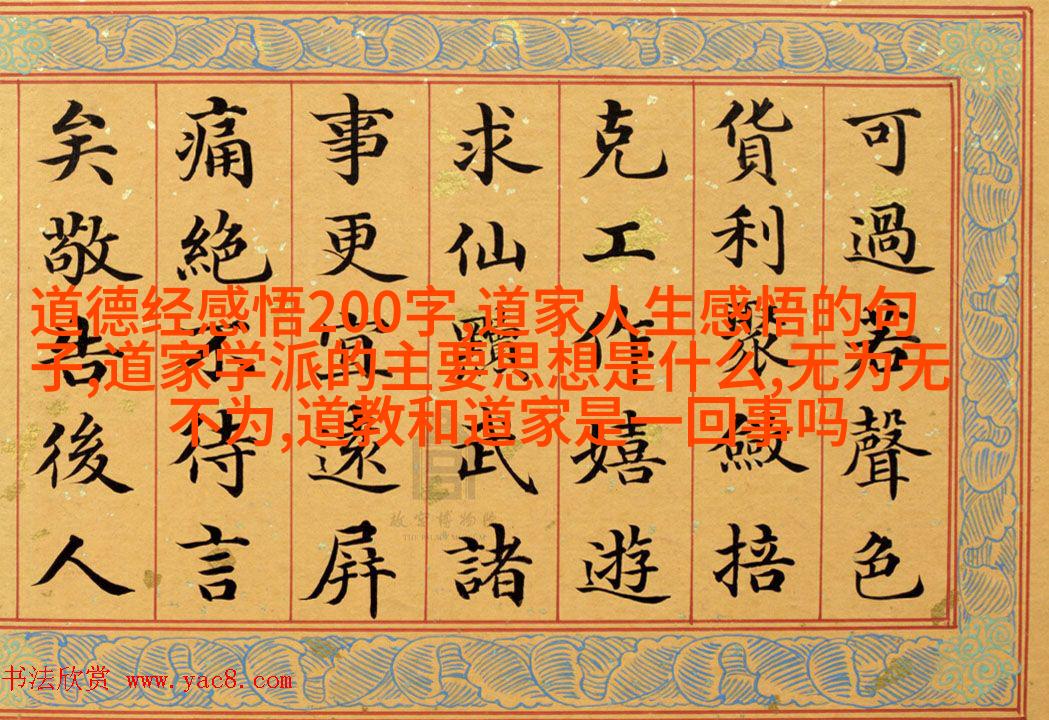 可過若聲色
貨利聚斂掊
克工作嬉遊
求仙黷武諸
事更宜遠屏
痛絕不待言
矣敬告後人
道德经感悟200字,道家人生感悟的句
子,道家学派的主要思想是什么,无为无
不为,道教和道家是一回事吗
故宫博物院
书法欣赏 www.yac8.com